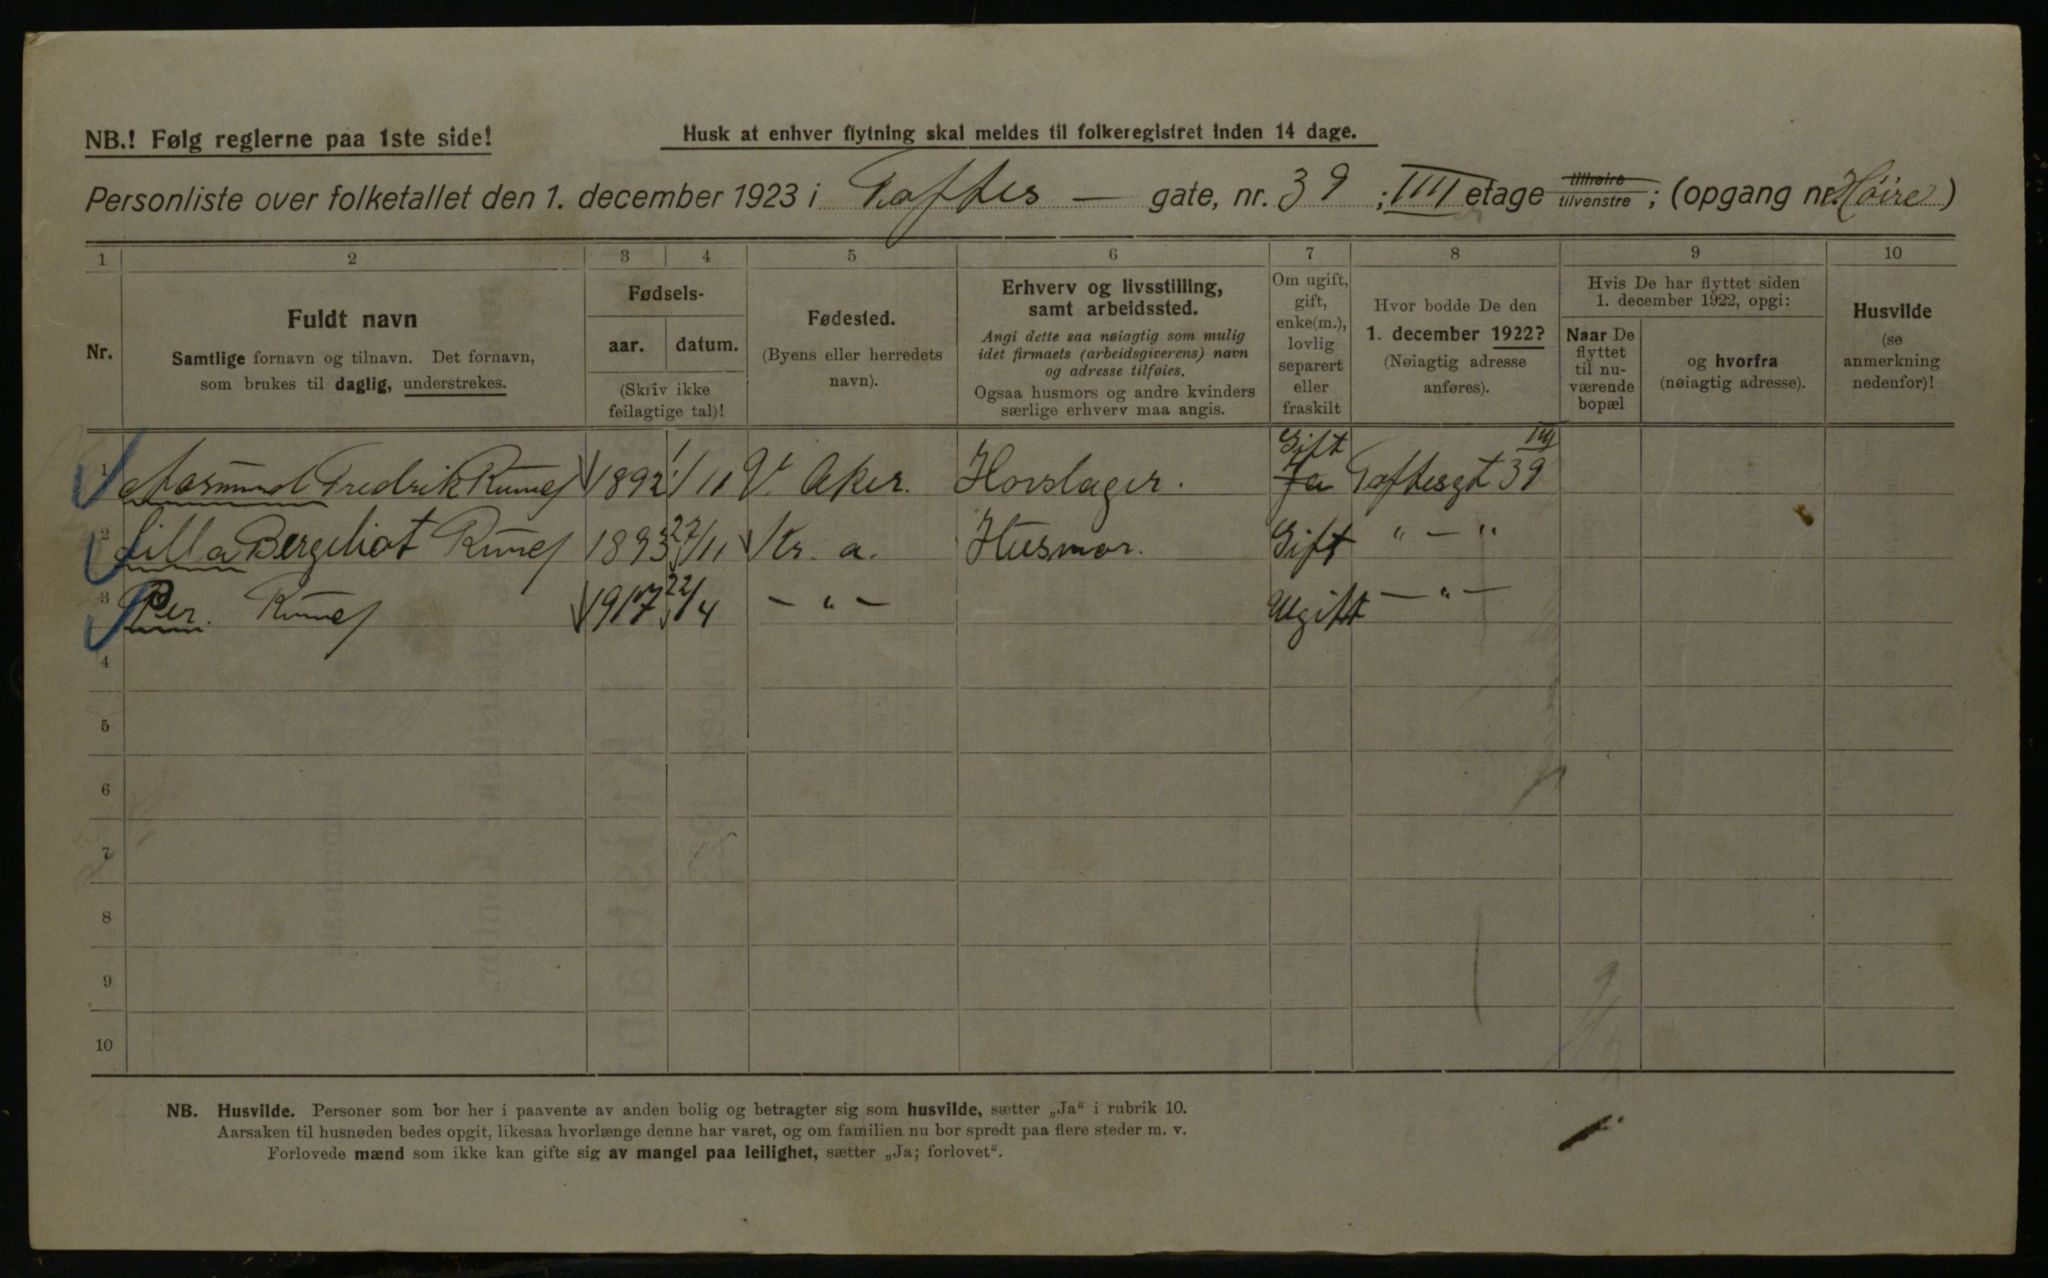 NB.! Følg reglerne paa 1ste side!
Husk at enhver flytning skal meldes til folkeregistret inden 14 dage.
Personliste over folketallet den 1. december 1923 i Toftes — gate, nr. 39 ; IIII etage tilhøire tilvenstre ; (opgang nr. Høire)
1 2 3 4 5 6 7 8 9 10
Nr.
Fuldt navn
Samtlige fornavn og tilnavn. Det fornavn,
som brukes til daglig, understrekes.
Fødsels-
aar. datum.
(Skriv ikke
feilagtige tal)!
Fødested.
(Byens eller herredets
navn).
Erhverv og livsstilling,
samt arbeidssted.
Angi dette saa nøiagtig som mulig
idet firmaets (arbeidsgiverens) navn
og adresse tilføies.
Ogsaa husmors og andre kvinders
særlige erhverv maa angis.
Om ugift,
gift,
enke(m.),
lovlig
separert
eller
fraskilt
Hvor bodde De den
1. december 1922?
(Nøiagtig adresse
anføres).
Hvis De har flyttet siden
1. december 1922, opgi:
Naar De
flyttet
til nu-
værende
bopæl
og hvorfra
(nøiagtig adresse).
Husvilde
(se
anmerkning
nedenfor)!
1 Aasmund Fredrik 1892 1/11 V. Aker. Hovslager. Gift Ja Toftesgt 39 IIII
2 Lilla Bergliot 1893 27/11 Kr. a. Husmor. Gift " — "
3 Per. 1917 22/4 — " — Ugift — " —
4
5
6
7
8
9
10
NB. Husvilde. Personer som bor her i paavente av anden bolig og betragter sig som husvilde, sætter „Ja“ i rubrik 10.
Aarsaken til husnøden bedes opgit, likesaa hvorlænge denne har varet, og om familien nu bor spredt paa flere steder m. v.
Forlovede mænd som ikke kan gifte sig av mangel paa leilighet, sætter „Ja; forlovet“.